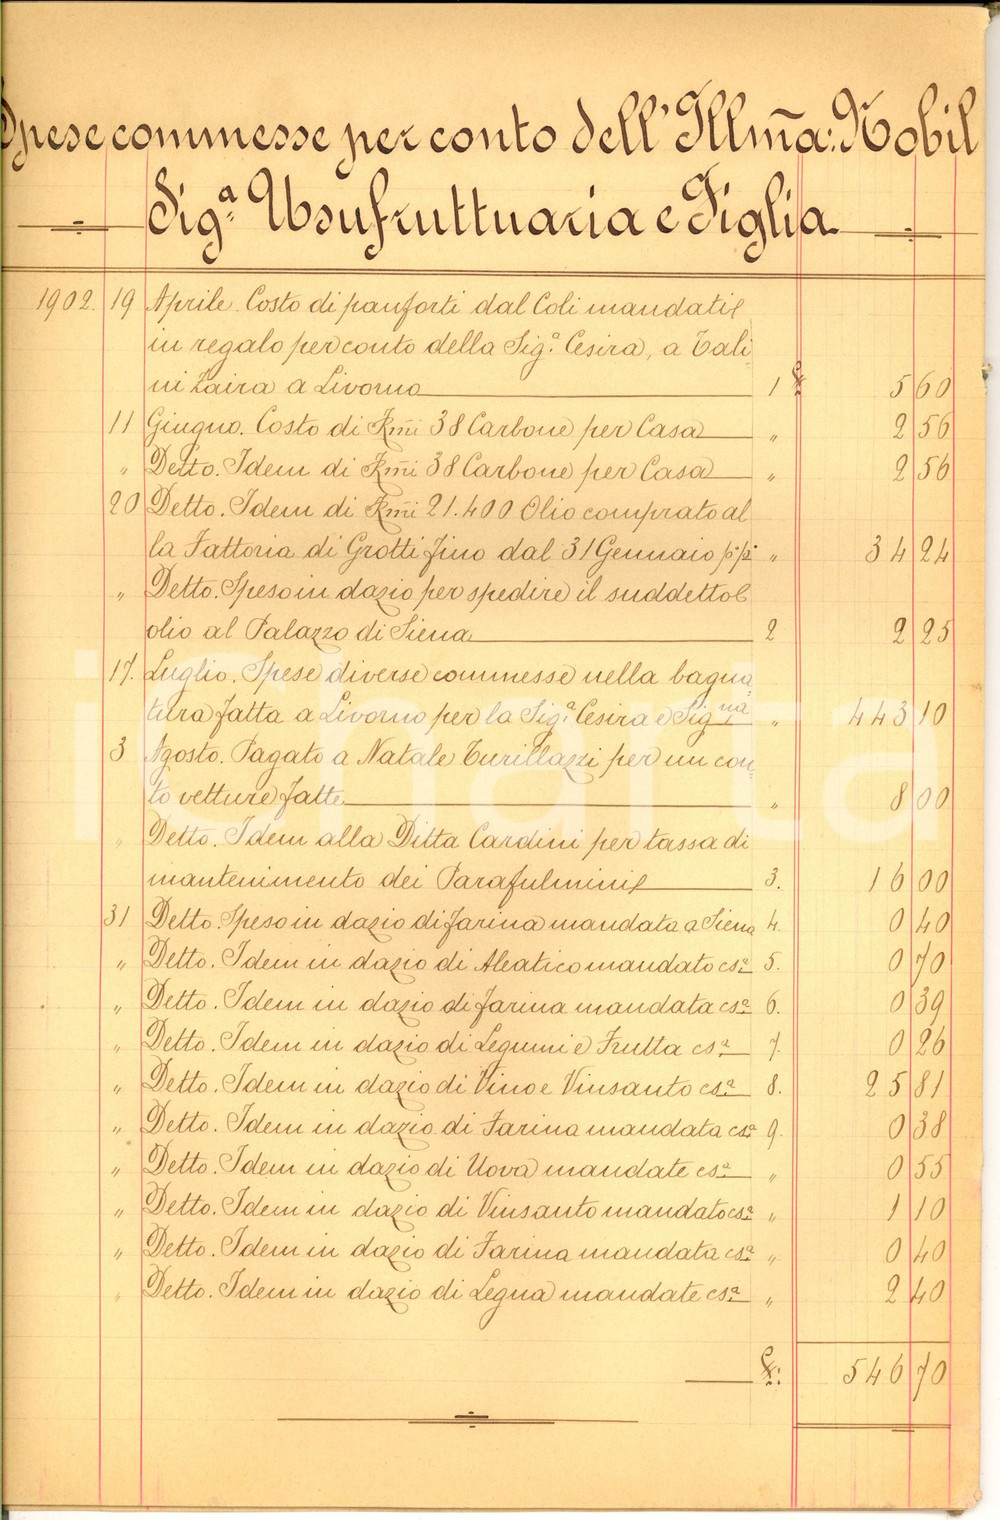 Spese commesse per conto dell' Illm̃a: Nobil
Sigª Usufruttuaria e Figlia
1902. 19 Aprile. Costo di panforti dal Coli mandati
in regalo per conto della Sig.ª Cesira, a Tali
ni Zaira a Livorno 1 £ 5 60
11 Giugno. Costo di Km̃i 38 Carbone per Casa " 2 56
" Detto. Idem di Km̃i 38 Carbone per Casa " 2 56
20 Detto. Idem di Km̃i 21.400 Olio comprato al
la Fattoria di Grotti fino dal 31 Gennaio p:p: " 34 24
" Detto. Speso in dazio per spedire il suddetto
olio al Palazzo di Siena 2 2 25
17. Luglio. Spese diverse commesse nella bagna=
tura fatta a Livorno per la Sig.ª Cesira e Sig.na " 443 10
3 Agosto. Pagato a Natale Turillazzi per un con=
to vetture fatte " 8 00
" Detto. Idem alla Ditta Cardini per tassa di
mantenimento dei Parafulmini 3. 16 00
31 Detto. Speso in dazio di farina mandata a Siena 4. 0 40
" Detto. Idem in dazio di Aleatico mandato csª 5. 0 70
" Detto. Idem in dazio di farina mandata csª 6. 0 39
" Detto. Idem in dazio di Legumi e Frutta csª 7. 0 26
" Detto. Idem in dazio di Vino e Vinsanto csª 8. 25 81
" Detto. Idem in dazio di Farina mandata csª 9. 0 38
" Detto. Idem in dazio di Uova mandate csª " 0 55
" Detto. Idem in dazio di Vinsanto mandato csª " 1 10
" Detto. Idem in dazio di Farina mandata csª " 0 40
" Detto. Idem in dazio di Legna mandate csª " 2 40
£: 546 70